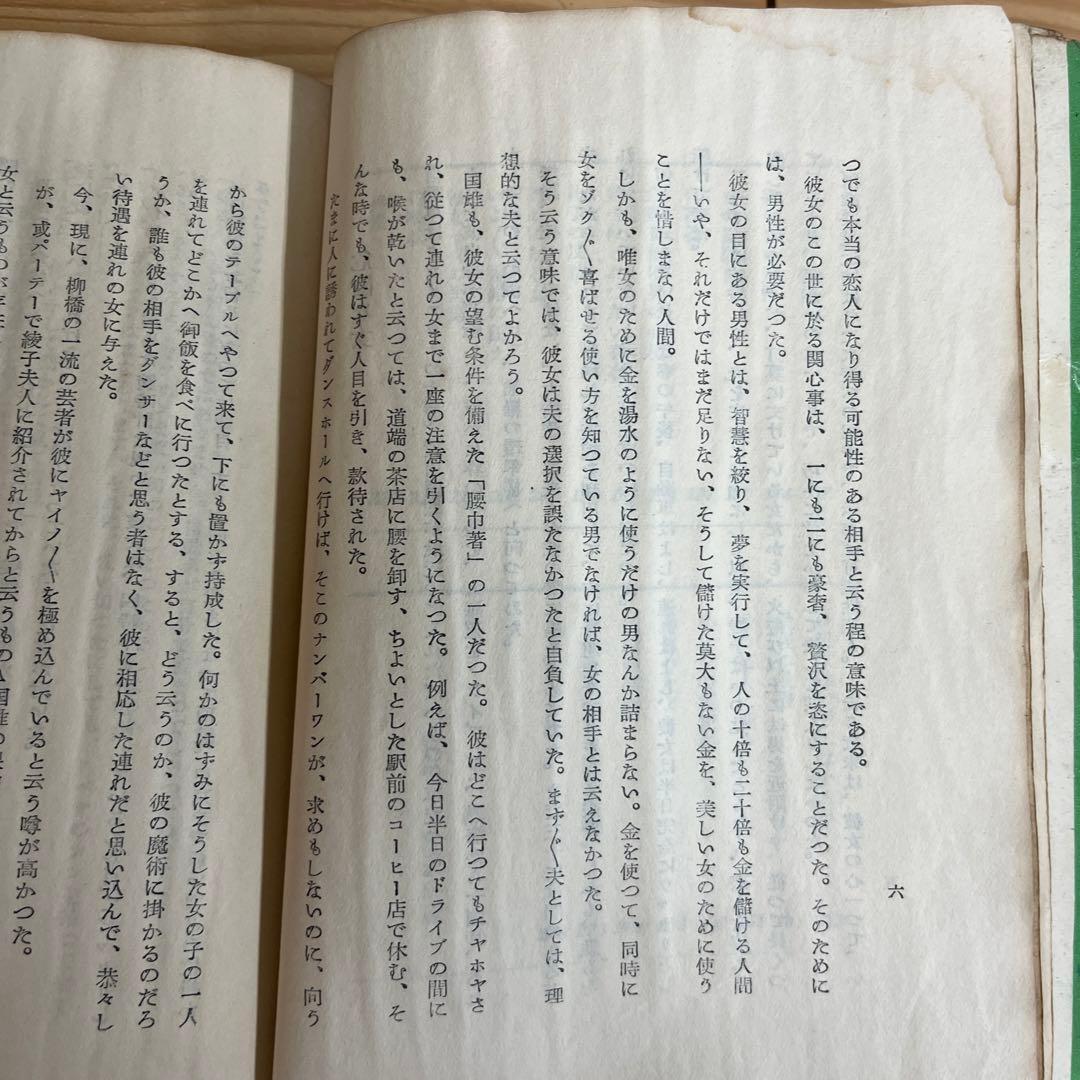 六
つでも本当の恋人になり得る可能性のある相手と云う程の意味である。
彼女のこの世に於る関心事は、一にも二にも豪奢、贅沢を恣にすることだつた。そのために
は、男性が必要だつた。
彼女の目にある男性とは、智慧を絞り、夢を実行して、人の十倍も二十倍も金を儲ける人間
――いや、それだけではまだ足りない、そうして儲けた莫大もない金を、美しい女のために使う
ことを惜しまない人間。
しかも、唯女のために金を湯水のように使うだけの男なんか詰まらない。金を使つて、同時に
女をゾク〳〵喜ばせる使い方を知つている男でなければ、女の相手とは云えなかつた。
そう云う意味では、彼女は夫の選択を誤たなかつたと自負していた。まず〳〵夫としては、理
想的な夫と云つてよかろう。
国雄も、彼女の望む条件を備えた「腰巾著」の一人だつた。彼はどこへ行つてもチヤホヤさ
れ、従つて連れの女まで一座の注意を引くようになつた。例えば、今日半日のドライブの間に
も、喉が乾いたと云つては、道端の茶店に腰を卸す、ちよいとした駅前のコーヒー店で休む、そ
んな時でも、彼はすぐ人目を引き、款待された。
たまに人に誘われてダンスホールへ行けば、そこのナンバーワンが、求めもしないのに、向う
から彼のテーブルへやつて来て、下にも置かず持成した。何かのはずみにそうした女の子の一人
を連れてどこかへ御飯を食べに行つたとする、すると、どう云うのか、彼の魔術に掛かるのだろ
うか、誰も彼の相手をダンサーなどと思う者はなく、彼に相応した連れだと思い込んで、恭々し
い待遇を連れの女に与えた。
今、現に、柳橋の一流の芸者が彼にヤイノ〳〵を極め込んでいると云う噂が高かつた。
が、或パーテーで綾子夫人に紹介されてからと云うもの
女と云うものが